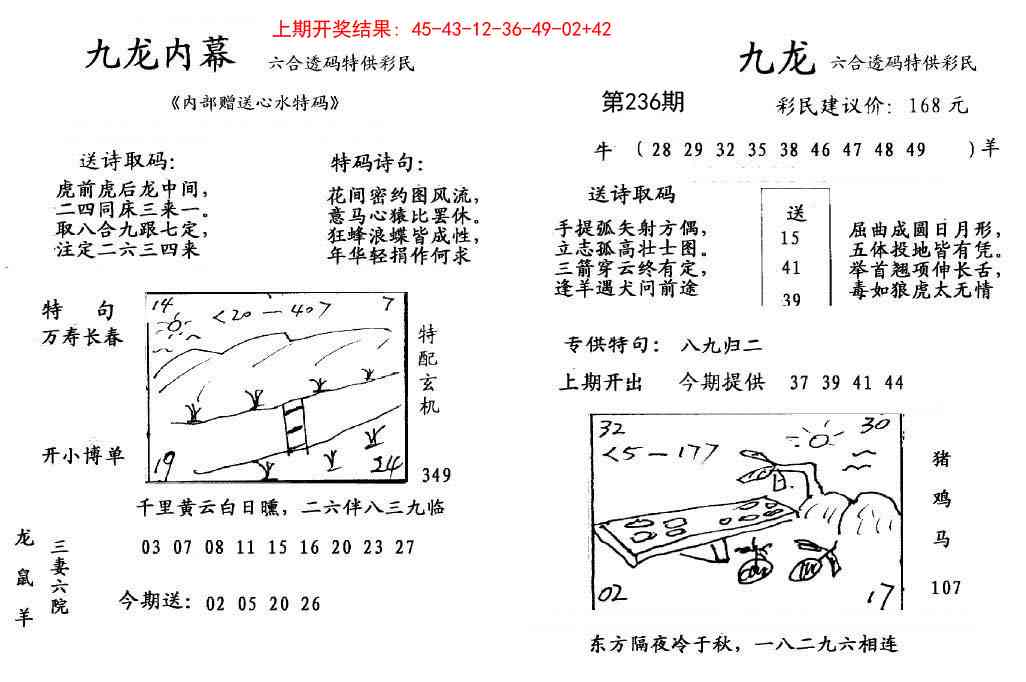 上期开奖结果：45-43-12-36-49-02+42
九龙内幕 六合透码特供彩民
《内部赠送心水特码》
送诗取码：
虎前虎后龙中间，
二四同床三来一。
取八合九跟七定，
注定二六三四来
特码诗句：
花间密约图风流，
意马心猿比罢休。
狂蜂浪蝶皆成性，
年华轻捐作何求
特 句
万寿长春
开小博单
14
<20-40>
7
19
24
特配玄机
349
千里黄云白日曛，二六伴八三九临
龙鼠羊
三妻六院
03 07 08 11 15 16 20 23 27
今期送：02 05 20 26
九龙 六合透码特供彩民
第236期 彩民建议价：168元
牛 （28 29 32 35 38 46 47 48 49 ）羊
送诗取码
手提弧矢射方偶，
立志孤高壮士图。
三箭穿云终有定，
逢羊遇犬问前途
送
15
41
39
屈曲成圆日月形，
五体投地皆有凭。
举首翘项伸长舌，
毒如狼虎太无情
专供特句： 八九归二
上期开出 今期提供 37 39 41 44
32
<5-17>
30
02
17
猪鸡马
107
东方隔夜冷于秋，一八二九六相连